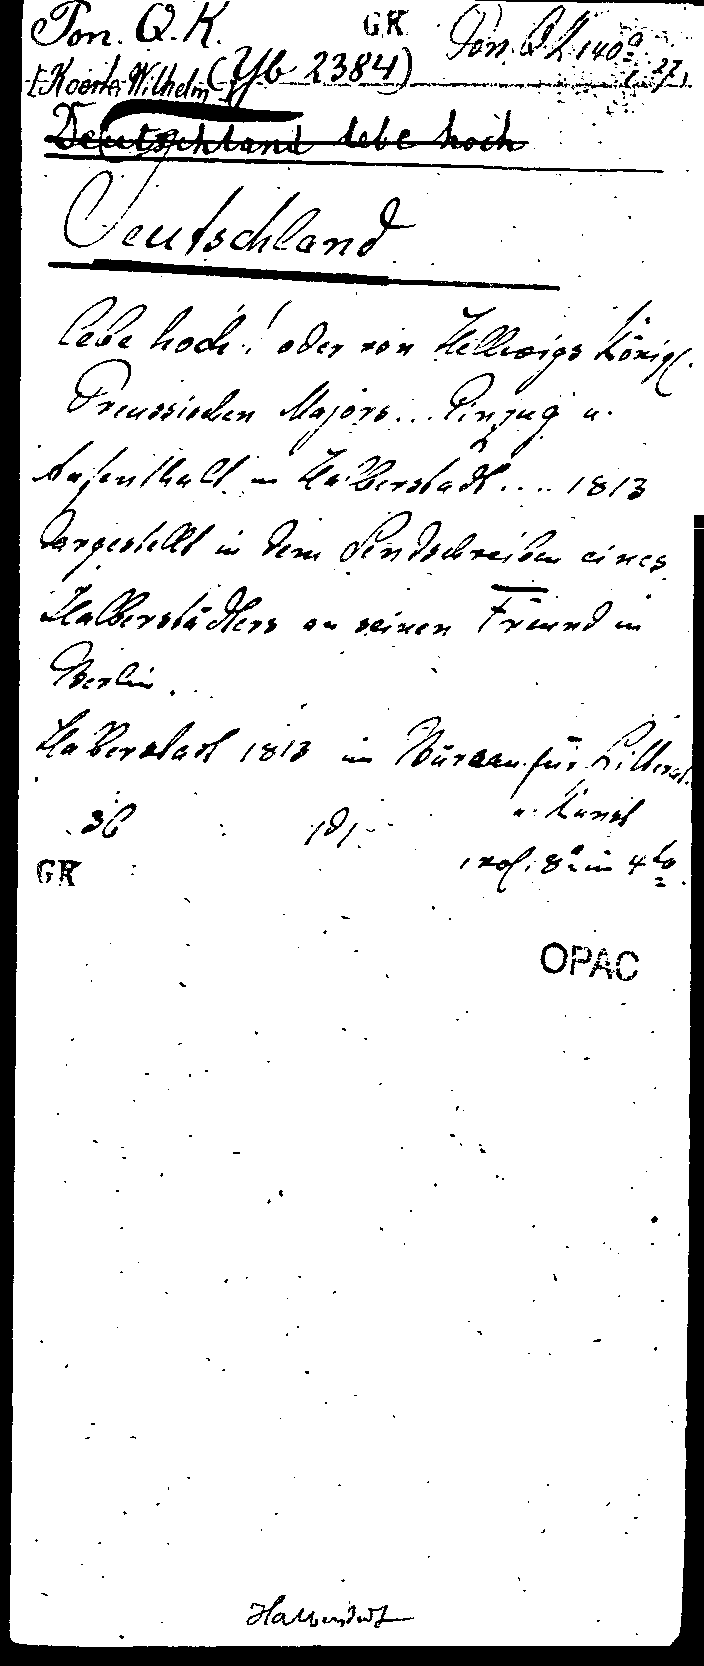 Pon. Q. K. GK Pon. Q. K 140a
[Koerte, Wilhelm] (Yb 2384) 27,
Deutschland lebe hoch
Deutschland
lebe hoch! oder von Hellwigs Königl.
Preussischen Majors... Einzug u.
Aufenthalt in Halberstadt.... 1813
dargestellt in dem Sendschreiben eines
Halberstädters an seinen Freund in
Berlin.
Halberstadt 1813 im Bureau für Litterat.
36 u. Kunst
8° in 4to
GK
OPAC
Halberstadt